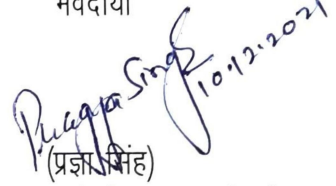 भवदीया
Pragya Singh
10.12.2021
(प्रज्ञा सिंह)